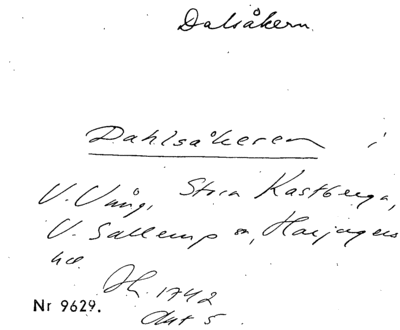 Dalsåkern.
Dahlsåkeren i
V. Vång, Stora Kastberga,
V. Sallerup sn, Harjagers
hd.
Jh. 1742
Akt 5
Nr 9629.